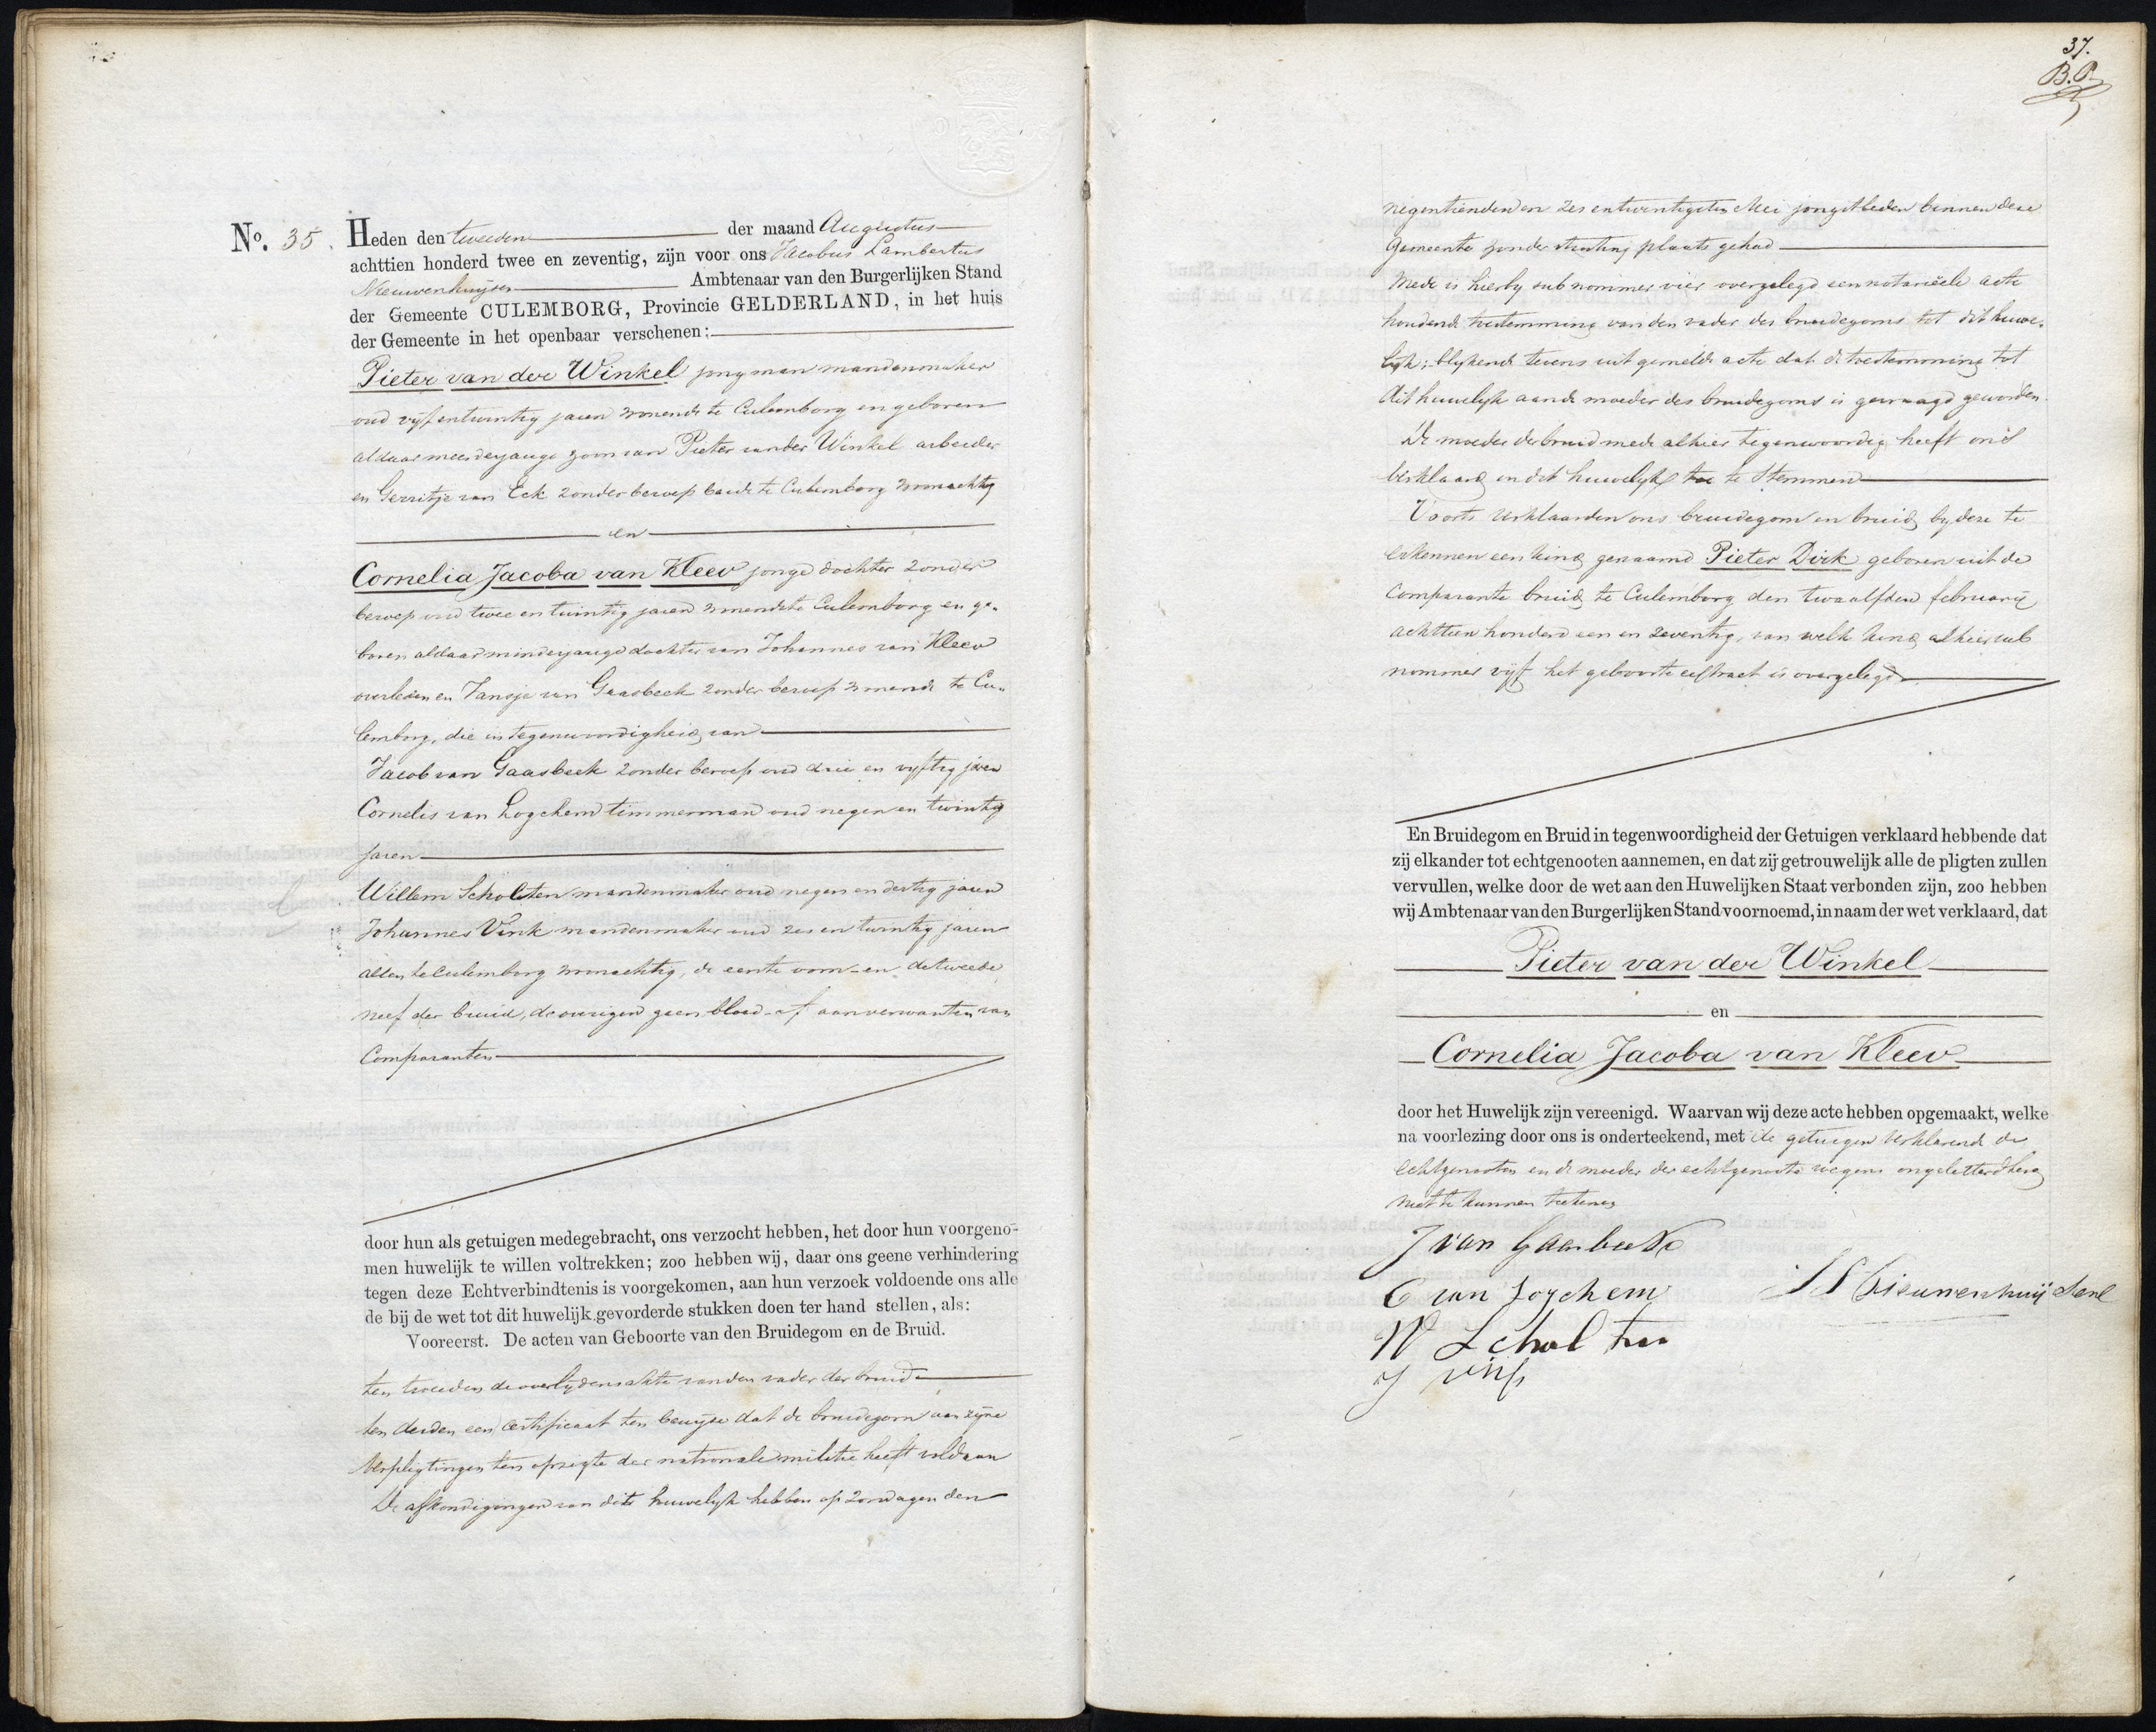 No. 35. Heden den tweeden der maand Augustus
achttien honderd twee en zeventig, zijn voor ons Jacobus Lambertus
Nieuwenhuijsen Ambtenaar van den Burgerlijken Stand
der Gemeente CULEMBORG, Provincie GELDERLAND, in het huis
der Gemeente in het openbaar verschenen:
Pieter van der Winkel jongman mandenmaker
oud vijfentwintig jaren wonende te Culemborg en geboren
aldaar meerderjarige zoon van Pieter van der Winkel arbeider
en Gerritje van Eck zonder beroep beide te Culemborg woonachtig
en
Cornelia Jacoba van Kleev jonge dochter zonder
beroep oud twee en twintig jaren wonende te Culemborg en ge-
boren aldaar minderjarige dochter van Johannes van Kleev
overleden en Jansje van Gaasbeek zonder beroep wonende te Cu-
lemborg, die in tegenwoordigheid van
Jacob van Gaasbeek zonder beroep oud drie en vijftig jaren
Cornelis van Logchem timmerman oud negen en twintig
jaren
Willem Scholten mandenmaker oud negen en dertig jaren
Johannes Vink mandenmaker oud zes en twintig jaren
allen te Culemborg woonachtig, de eerste oom en de tweede
neef der bruid, de overigen geen bloed- of aanverwanten van
Comparanten
door hun als getuigen medegebracht, ons verzocht hebben, het door hun voorgeno-
men huwelijk te willen voltrekken; zoo hebben wij, daar ons geene verhindering
tegen deze Echtverbindtenis is voorgekomen, aan hun verzoek voldoende ons alle
de bij de wet tot dit huwelijk gevorderde stukken doen ter hand stellen, als:
Vooreerst. De acten van Geboorte van den Bruidegom en de Bruid.
ten tweeden de overlijdensakte van den vader der bruid
ten derden een certificaat ten bewijze dat de bruidegom aan zijne
verpligtingen ten opzigte der nationale militie heeft voldaan
De afkondigingen van dit huwelijk hebben op Zondagen den
37.
B.P.
negentienden en zes en twintigsten Mei jongstleden binnen deze
Gemeente zonder stuiting plaats gehad
Mede is hierbij sub nommer vier overgelegd een notariëele acte
houdende toestemming van den vader des bruidegoms tot dit huwe-
lijk; blijkende tevens uit gemelde acte dat de toestemming tot
dit huwelijk aan de moeder des bruidegoms is gevraagd geworden.
De moeder der bruid mede alhier tegenwoordig heeft ons
verklaard in dit huwelijk toe te stemmen
Voorts verklaarden ons bruidegom en bruid bij deze te
erkennen een kind genaamd Pieter Dirk geboren uit de
Comparante bruid te Culemborg den twaalfden februarij
achttien honderd een en zeventig, van welk kind alhier sub
nommer vijf het geboorte extract is overgelegd
En Bruidegom en Bruid in tegenwoordigheid der Getuigen verklaard hebbende dat
zij elkander tot echtgenooten aannemen, en dat zij getrouwelijk alle de pligten zullen
vervullen, welke door de wet aan den Huwelijken Staat verbonden zijn, zoo hebben
wij Ambtenaar van den Burgerlijken Stand voornoemd, in naam der wet verklaard, dat
Pieter van der Winkel
en
Cornelia Jacoba van Kleev
door het Huwelijk zijn vereenigd. Waarvan wij deze acte hebben opgemaakt, welke
na voorlezing door ons is onderteekend, met de getuigen verklarende de
echtgenooten en de moeder der echtgenoote wegens ongeletterdheid
niet te kunnen teekenen
J van Gaasbeek
C van Logchem
W Scholten
J vink